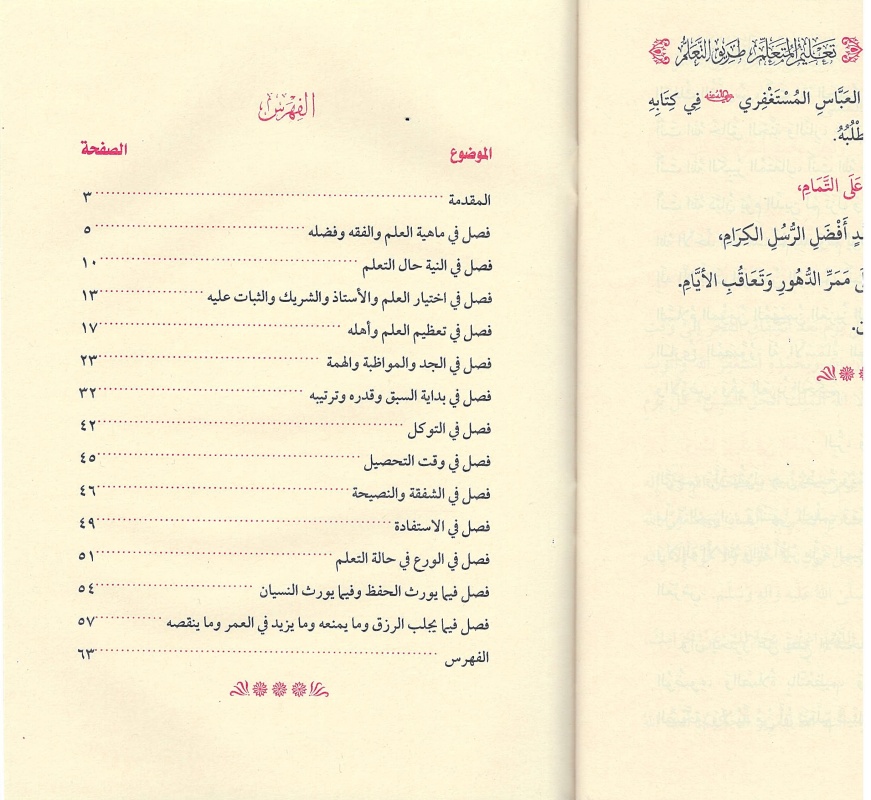 تَعْلِيمُ المُتَعَلِّمِ طَرِيقَ التَّعَلُّمِ
العَبَّاسِ المُسْتَغْفِرِي فِي كِتَابِهِ
عَلَى التَّمَامِ،
أَفْضَلِ الرُّسُلِ الكِرَامِ،
مَمَرِّ الدُّهُورِ وَتَعَاقُبِ الأَيَّامِ.
الفهرس
الموضوع الصفحة
المقدمة ٣
فصل في ماهية العلم والفقه وفضله ٥
فصل في النية حال التعلم ١٠
فصل في اختيار العلم والأستاذ والشريك والثبات عليه ١٣
فصل في تعظيم العلم وأهله ١٧
فصل في الجد والمواظبة والهمة ٢٣
فصل في بداية السبق وقدره وترتيبه ٣٢
فصل في التوكل ٤٢
فصل في وقت التحصيل ٤٥
فصل في الشفقة والنصيحة ٤٦
فصل في الاستفادة ٤٩
فصل في الورع في حالة التعلم ٥١
فصل فيما يورث الحفظ وفيما يورث النسيان ٥٤
فصل فيما يجلب الرزق وما يمنعه وما يزيد في العمر وما ينقصه ٥٧
الفهرس ٦٣